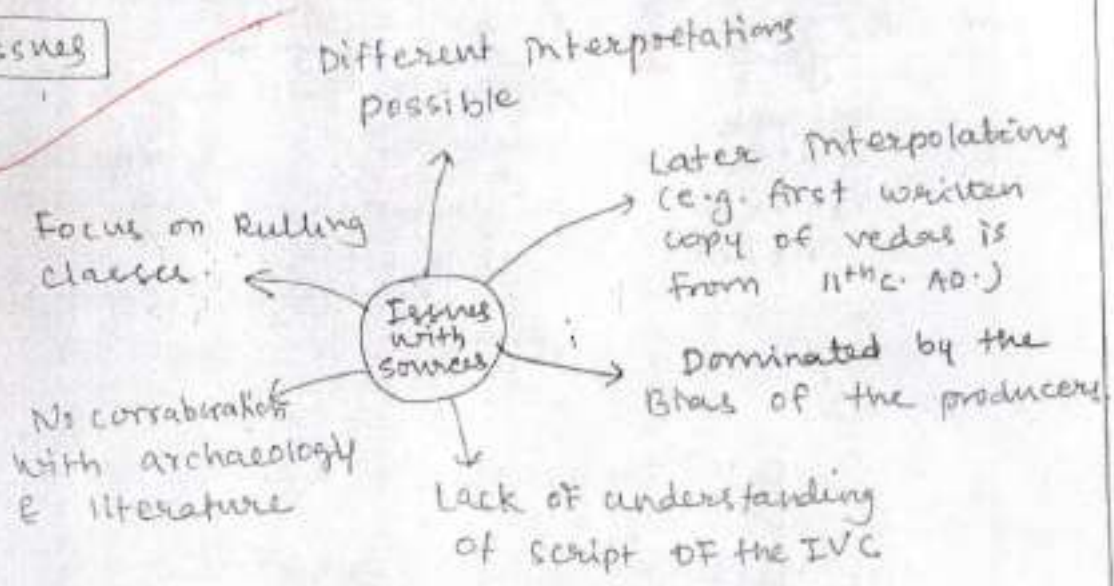 ssues
Different Interpretations
possible
Later Interpolations
(e.g. first written
copy of vedas is
from 11th c. AD.)
Focus on Rulling
classes.
Issues
with
sources
Dominated by the
Bias of the producers
No corraboration
with archaeology
& literature
Lack of understanding
of script OF the IVC